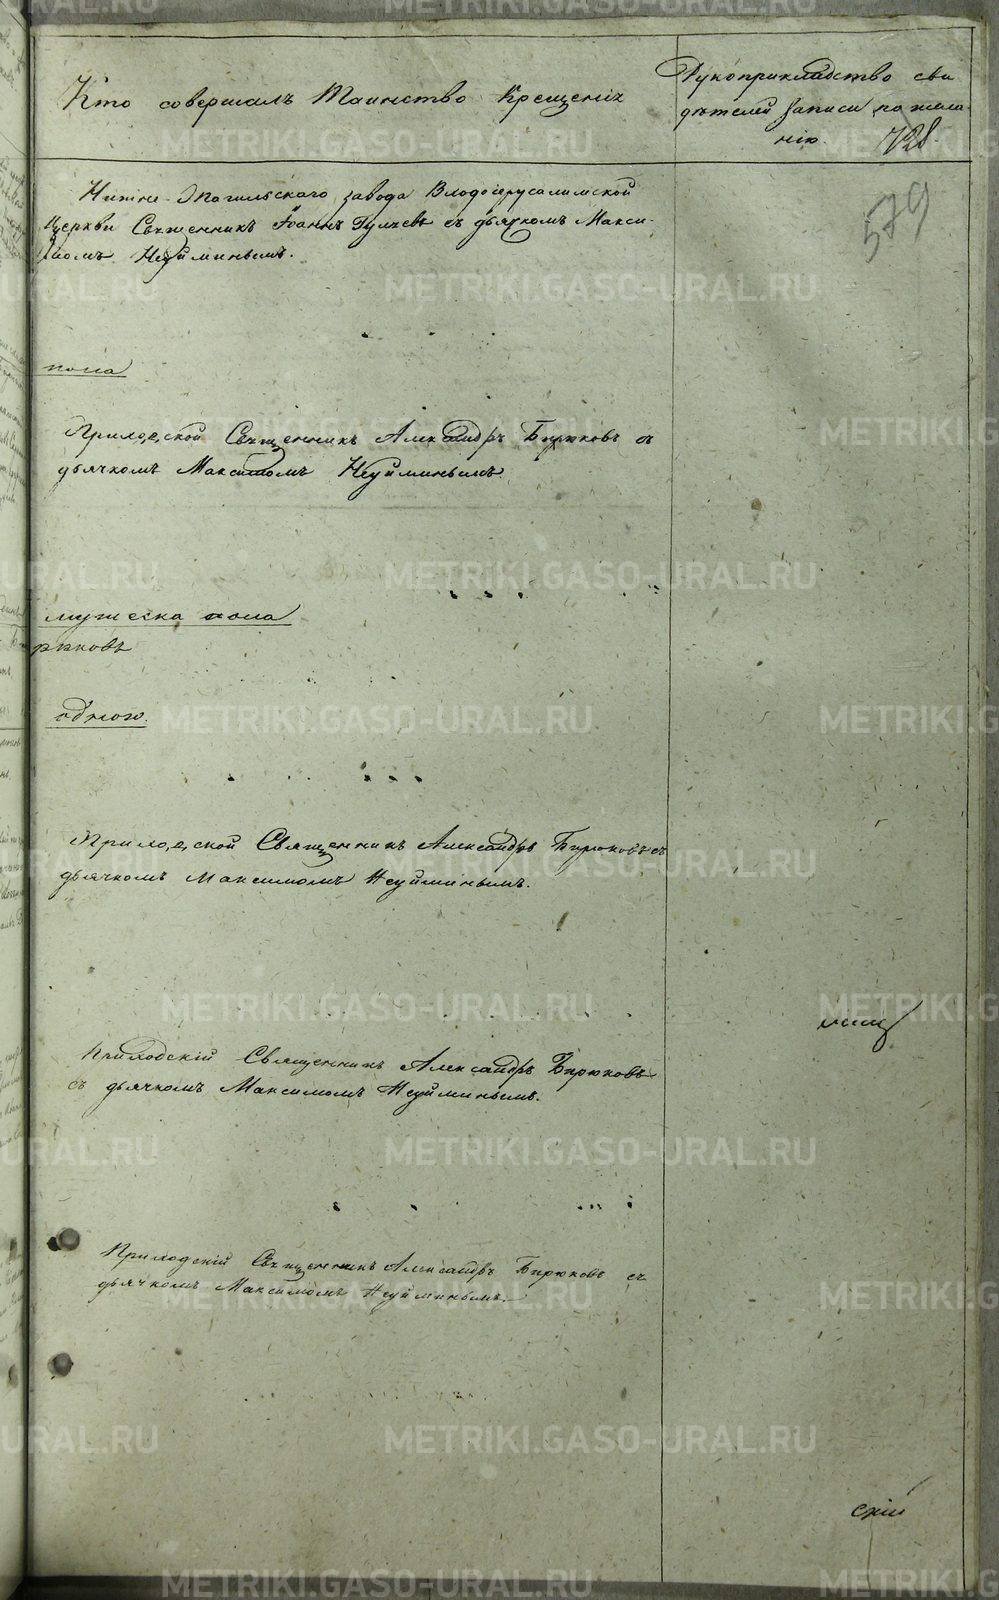 Кто совершалъ Таинство Крещенія
Рукоприкладство сви
дѣтелей записи по жела
нію. 728.
579
Нижне-Тагильскаго завода Входоіерусалимской
Церкви Священникъ Іоаннъ с дьячкомъ Макси-
момъ Неуйминымъ.
пола
Приходской Священникъ Александръ Бирюковъ съ
дьячкомъ Максимомъ Неуйминымъ
мужеска пола
рюковъ
одного.
Приходской Священникъ Александръ Бирюковъ съ
дьячкомъ Максимомъ Неуйминымъ.
Приходскій Священникъ Александръ Бирюковъ
съ дьячкомъ Максимомъ Неуйминымъ.
Приходскій Священникъ Александръ Бирюковъ съ
дьячкомъ Максимомъ Неуйминымъ.
скій
METRIKI.GASO-URAL.RU